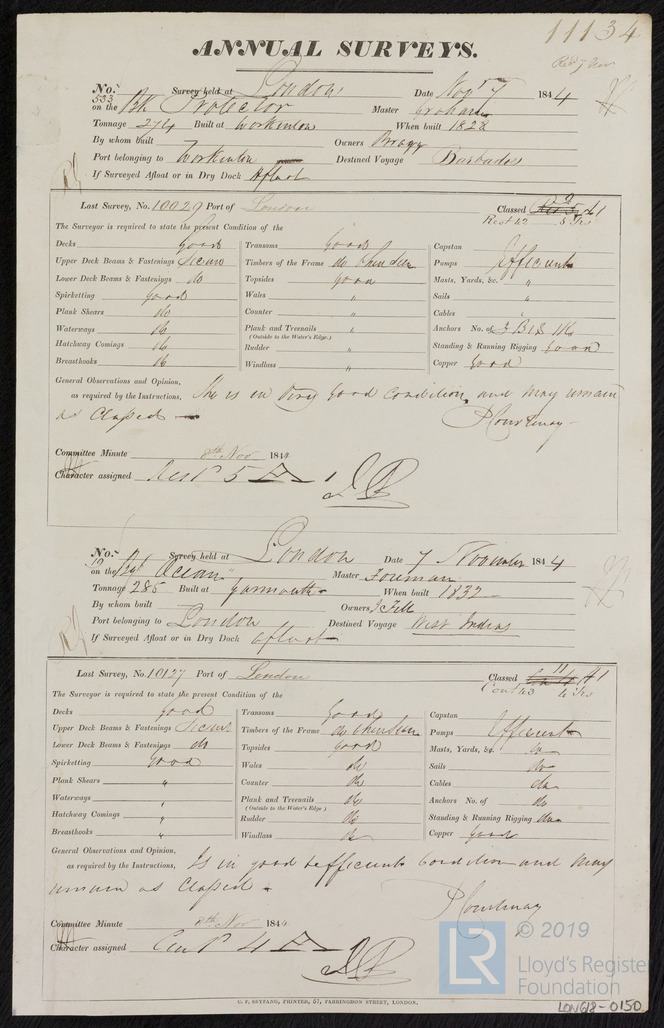 11134
ANNUAL SURVEYS.
No. 533 Survey held at London Date Nov 7 1844
on the Bk Protector Master Graham
Tonnage 274 Built at Workinton When built 1828
By whom built Owners Bragg
Port belonging to Workinton Destined Voyage Barbados
If Surveyed Afloat or in Dry Dock Afloat
Last Survey, No. 10029 Port of London Classed A1
Rest 42 5 Yrs
The Surveyor is required to state the present Condition of the
Decks good Transoms good Capstan
Upper Deck Beams & Fastenings Secure Timbers of the Frame do when seen Pumps Efficient
Lower Deck Beams & Fastenings do Topsides good Masts, Yards, &c. "
Spirketting good Wales " Sails "
Plank Shears do Counter " Cables "
Waterways do Plank and Treenails " Anchors No. of 3 B 1 S 1 K
(Outside to the Water's Edge.)
Hatchway Comings do Rudder " Standing & Running Rigging good
Breasthooks do Windlass " Copper good
General Observations and Opinion,
as required by the Instructions, She is in very good condition, and may remain
as classed
P Courtenay
Committee Minute 8th Nov 1844
Character assigned Rest 5 A 1
No. 19 Survey held at London Date 7 November 1844
on the Ocean Master Foreman
Tonnage 285 Built at Yarmouth When built 1837
By whom built Owners J Fell
Port belonging to London Destined Voyage West Indies
If Surveyed Afloat or in Dry Dock afloat
Last Survey, No. 10127 Port of London Classed 11 A1
Cont 43 4 Yrs
The Surveyor is required to state the present Condition of the
Decks good Transoms good Capstan
Upper Deck Beams & Fastenings Secure Timbers of the Frame do when seen Pumps Efficient
Lower Deck Beams & Fastenings do Topsides good Masts, Yards, &c. do
Spirketting good Wales do Sails do
Plank Shears " Counter do Cables do
Waterways " Plank and Treenails do Anchors No. of do
(Outside to the Water's Edge.)
Hatchway Comings " Rudder do Standing & Running Rigging do
Breasthooks " Windlass do Copper good
General Observations and Opinion,
as required by the Instructions, Is in good & efficient Condition and may
remain as classed
P Courtenay
Committee Minute 8th Nov 1844
Character assigned Cont 4 A
© 2019
LR Lloyd's Register
Foundation
C. F. SEYFANG, PRINTER, 57, FARRINGDON STREET, LONDON.
LON618-0150